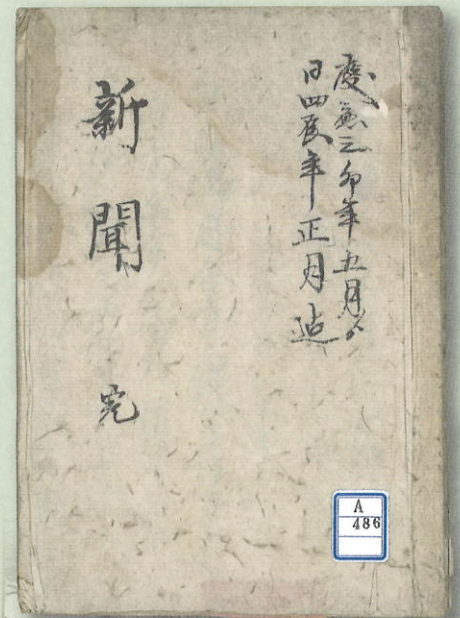 慶應三卯年五月ゟ
同四辰年正月迠
新聞 完
A
486